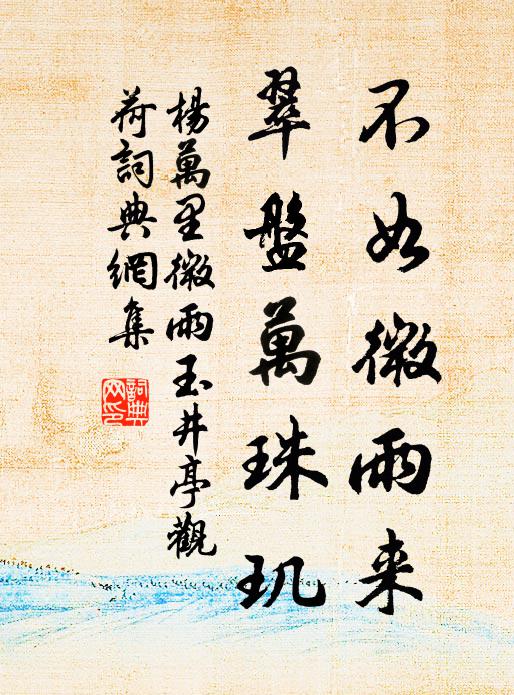 不如微雨来
翠盤萬珠玑
楊萬里微雨玉井亭觀
荷詞典網集
詞典
网印